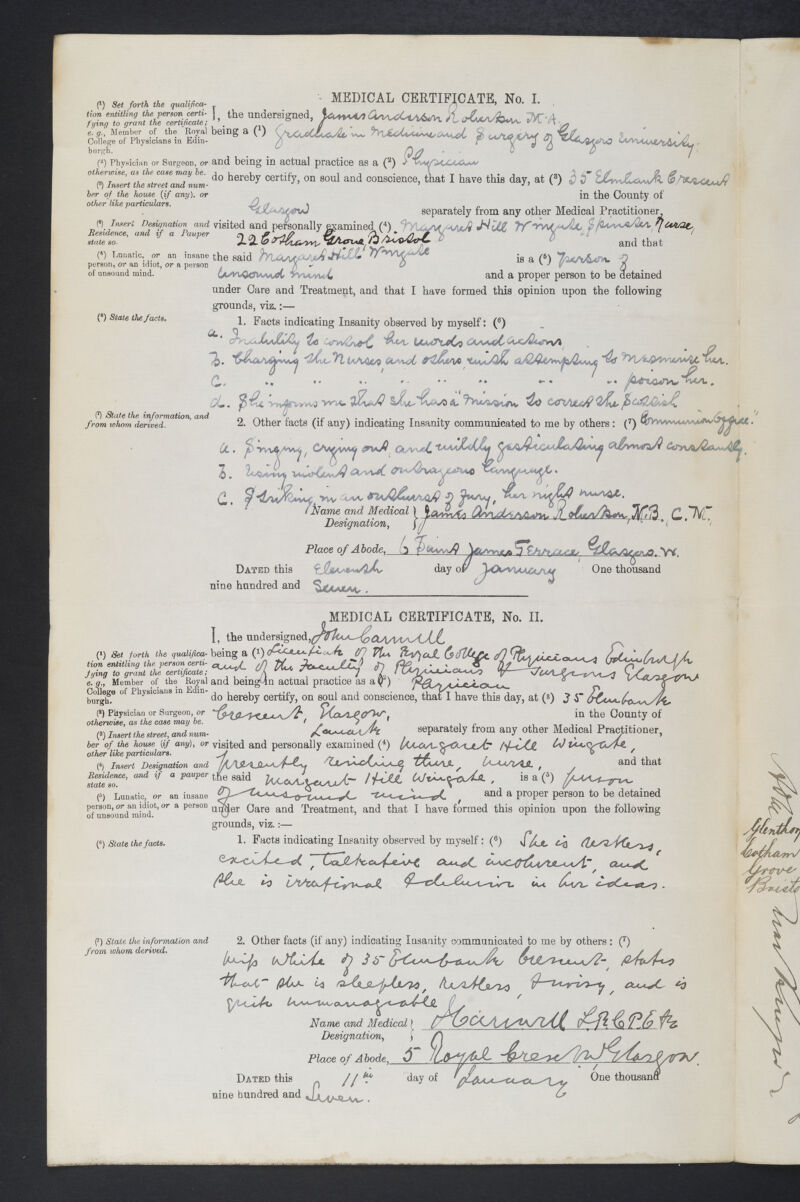 MEDICAL CERTIFICATE, No. I.
(¹) Set forth the qualifica-
tion entitling the person certi-
fying to grant the certificate;
e.g., Member of the Royal
College of Physicians in Edin-
burgh.
(²) Physician or Surgeon, or
otherwise, as the case may be.
(³) Insert the street and num-
ber of the house (if any), or
other like particulars.
(⁴) Insert Designation and
Residence, and if a Pauper
state so.
(⁵) Lunatic, or an insane
person, or an idiot, or a person
of unsound mind.
(⁶) State the facts.
(⁷) State the information, and
from whom derived.
I, the undersigned, James Anderson Robertson M.A.
being a (¹) graduate in Medicine and Surgery of Glasgow University.
and being in actual practice as a (²) Physician
do hereby certify, on soul and conscience, that I have this day, at (³) 35 Elmbank Crescent
Glasgow in the County of
separately from any other Medical Practitioner,
visited and personally examined (⁴) Margaret Hill Wingate, Spinster Nurse,
22 Cotham Grove, Bristol and that
the said Margaret Hill Wingate is a (⁵) person of
unsound mind and a proper person to be detained
under Care and Treatment, and that I have formed this opinion upon the following
grounds, viz.:—
1. Facts indicating Insanity observed by myself: (⁶)
a. Inability to control her words and actions
b. Charging the Nurses, and others, with attempting to mesmerise her.
c. " " " " " " " " poison her.
d. She informs me that she has a "mission to correct the Scottish
Communion Office."
2. Other facts (if any) indicating Insanity communicated to me by others: (⁷)
a. Singing, crying out, and wildly gesticulating almost constantly.
b. Using violent and outrageous language.
c. Striking, in an outburst of fury, her night nurse.
Name and Medical Designation, } James Anderson Robertson, M.B., C.M.
Place of Abode, 6 Saint James Terrace, Glasgow. W.
DATED this Eleventh day of January One thousand
nine hundred and Seven.
MEDICAL CERTIFICATE, No. II.
(¹) Set forth the qualifica-
tion entitling the person certi-
fying to grant the certificate;
e.g., Member of the Royal
College of Physicians in Edin-
burgh.
(²) Physician or Surgeon, or
otherwise, as the case may be.
(³) Insert the street, and num-
ber of the house (if any), or
other like particulars.
(⁴) Insert Designation and
Residence, and if a pauper
state so.
(⁵) Lunatic, or an insane
person, or an idiot, or a person
of unsound mind.
(⁶) State the facts.
(⁷) State the information and
from whom derived.
I, the undersigned, John Carswell
being a (¹) Licentiate of the Royal College of Physicians Edinburgh
and of the Faculty of Physicians & Surgeons Glasgow
and being in actual practice as a (²) Physician
do hereby certify, on soul and conscience, that I have this day, at (³) 35 Elmbank
Crescent, Glasgow, in the County of
Lanark separately from any other Medical Practitioner,
visited and personally examined (⁴) Margaret Hill Wingate,
presently residing there, nurse, and that
the said Margaret Hill Wingate, is a (⁵) person
of unsound mind, and a proper person to be detained
under Care and Treatment, and that I have formed this opinion upon the following
grounds, viz.:—
1. Facts indicating Insanity observed by myself: (⁶) She is restless,
excited, talkative and incoherent, and
she is irrational & delusive in her ideas.
2. Other facts (if any) indicating Insanity communicated to me by others: (⁷)
Miss White of 35 Elmbank Crescent, states
that she is sleepless, restless, & noisy, and is
quite unmanageable
Name and Medical Designation, } J Carswell L.R.C.P.E &c
Place of Abode, 5 Royal Cresc. W Glasgow.
DATED this 11th day of January One thousand
nine hundred and Seven.
Cotham
Grove